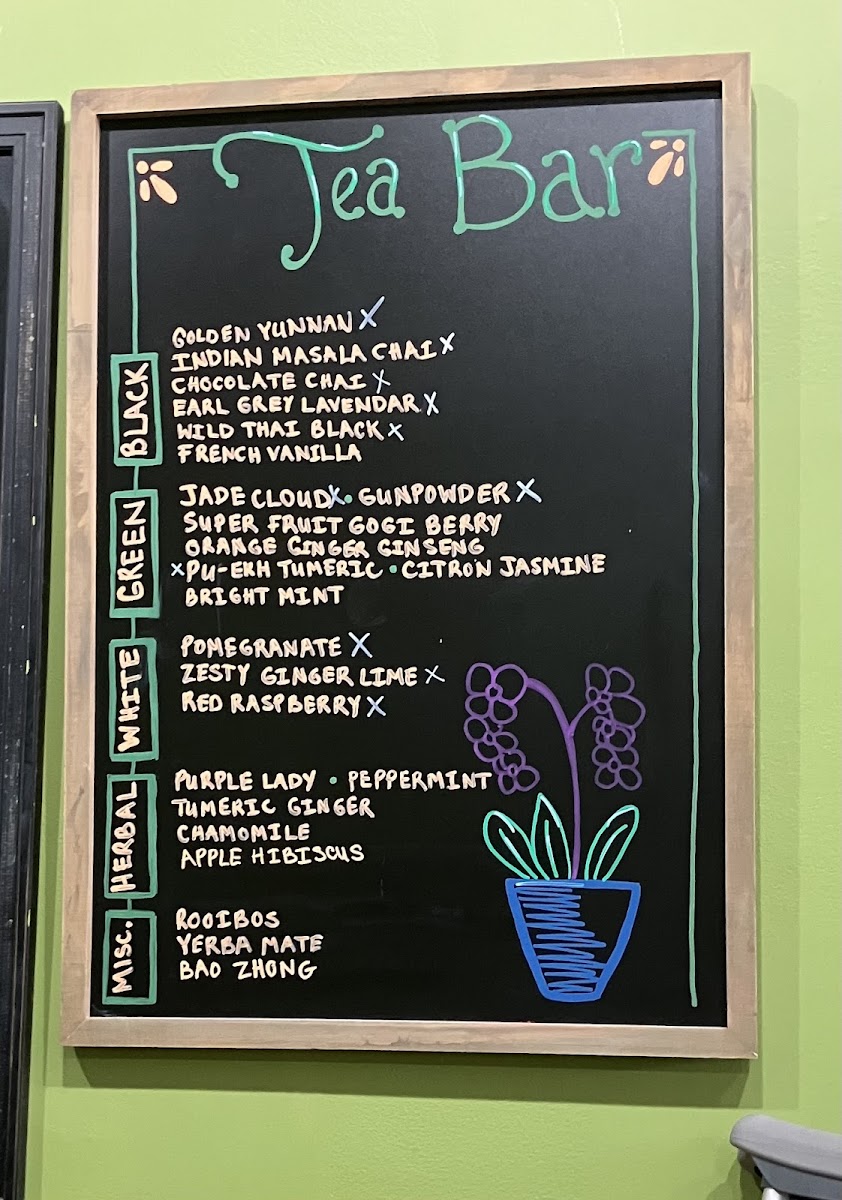 Tea Bar
BLACK
GOLDEN YUNNAN X
INDIAN MASALA CHAI X
CHOCOLATE CHAI X
EARL GREY LAVENDAR X
WILD THAI BLACK X
FRENCH VANILLA
GREEN
JADE CLOUD X • GUNPOWDER X
SUPER FRUIT GOGI BERRY
ORANGE GINGER GINSENG
X PU-ERH TUMERIC • CITRON JASMINE
BRIGHT MINT
WHITE
POMEGRANATE X
ZESTY GINGER LIME X
RED RASPBERRY X
HERBAL
PURPLE LADY • PEPPERMINT
TUMERIC GINGER
CHAMOMILE
APPLE HIBISCUS
MISC.
ROOIBOS
YERBA MATE
BAO ZHONG